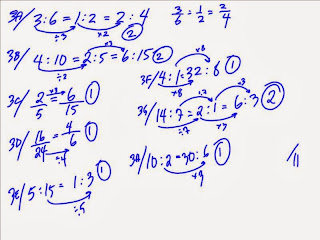 3A/ 3:6 = 1:2 = 2:4
÷3 ×2
3/6 = 1/2 = 2/4
×3
3B/ 4:10 = 2:5 = 6:15 2
÷2
×8
3F/ 4:1 = 32:8 1
×8
×3
3C/ 2/5 = 6/15 1
3G/ 14:7 = 2:1 = 6:3 2
÷7
3D/ 16/24 = 4/6 1
÷4
10:2 = 30:6 1
3E/ 5:15 = 1:3 1
÷5
11